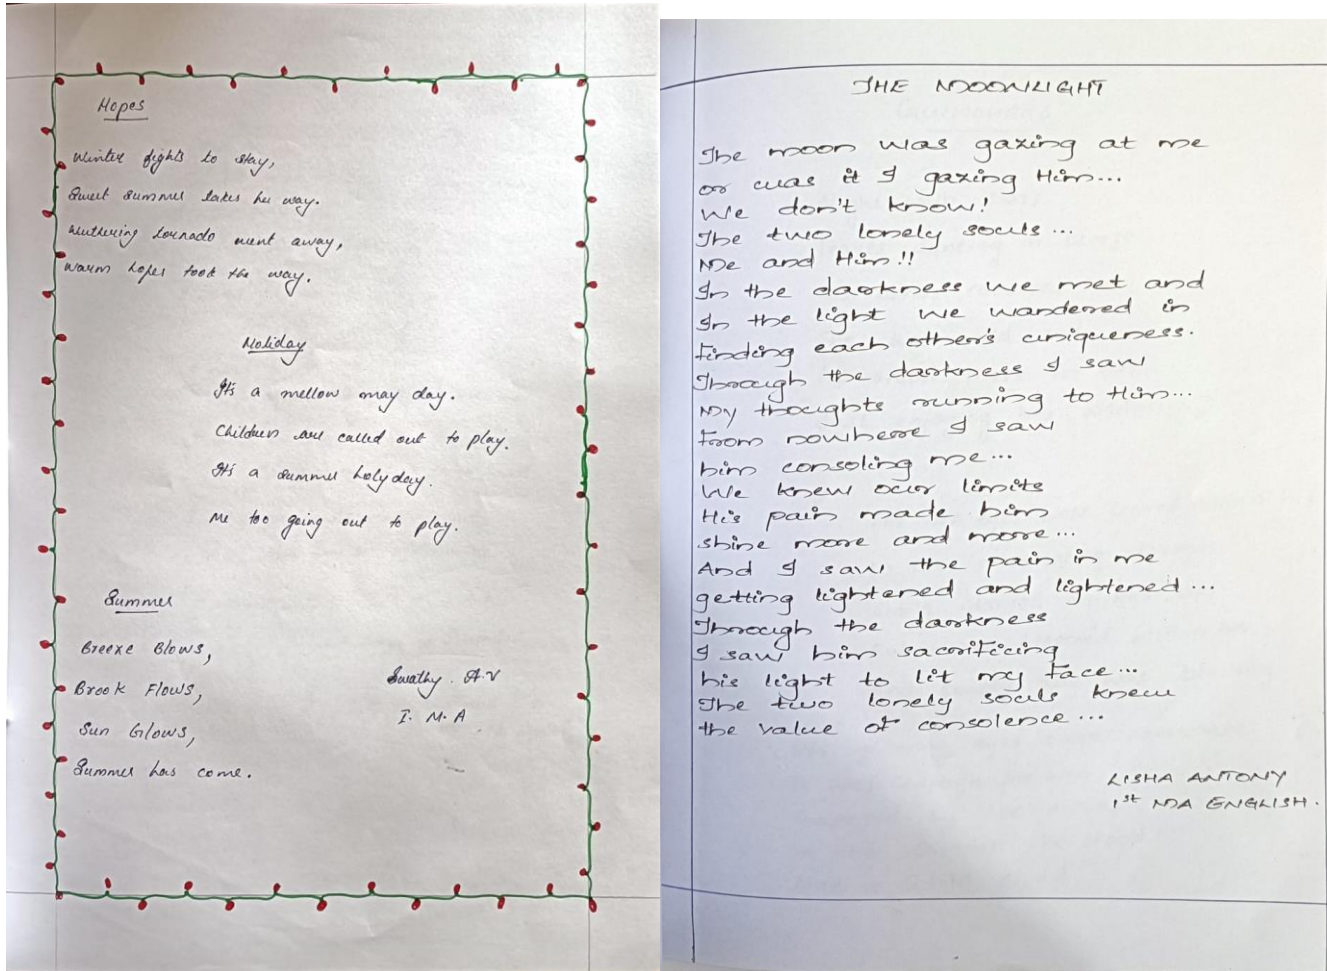 Hopes
Winter fights to stay,
Sweet summer takes her way.
Wuthering tornado went away,
Warm hopes took the way.
Holiday
It's a mellow may day.
Children are called out to play.
It's a summer holyday.
Me too going out to play.
Summer
Breeze Blows,
Brook Flows,
Sun Glows,
Summer has come.
Swathy. A.V
I. M.A
THE MOONLIGHT
The moon was gazing at me
or was it I gazing Him...
We don't know!
The two lonely souls...
Me and Him!!
In the darkness we met and
In the light we wandered in
finding each other's uniqueness.
Through the darkness I saw
My thoughts running to Him...
From nowhere I saw
him consoling me...
We knew our limits
His pain made him
shine more and more...
And I saw the pain in me
getting lightened and lightened...
Through the darkness
I saw him sacrificing
his light to lit my face...
The two lonely souls knew
the value of consolence...
LISHA ANTONY
1st MA ENGLISH.